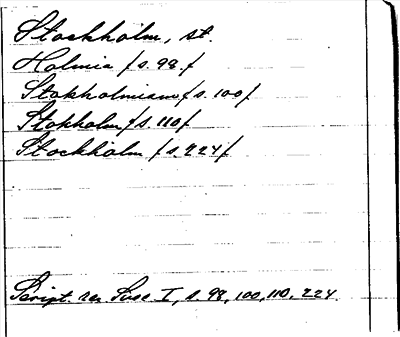 Stockholm, st.
Holmia / s. 98. /
Stokholmiam / s. 100 /
Stokholm / s. 110 /
Stockholm / s. 224 /
Script. rer. Suec. I, s. 98, 100, 110, 224.